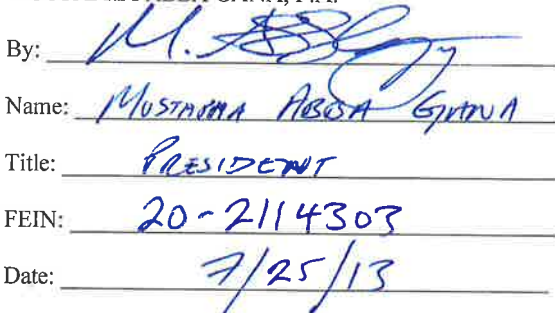 GANA, P.A.
By:
Name: MUSTAPHA ABBA GANA
Title: PRESIDENT
FEIN: 20-2114303
Date: 7/25/13